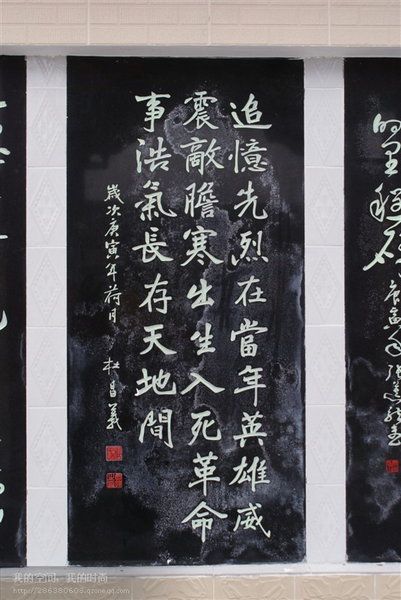 的里程碑
庚寅年
追憶先烈在當年英雄威
震敵膽寒出生入死革命
事浩氣長存天地間
歲次庚寅年荷月 杜昌義
我的空间，我的时尚